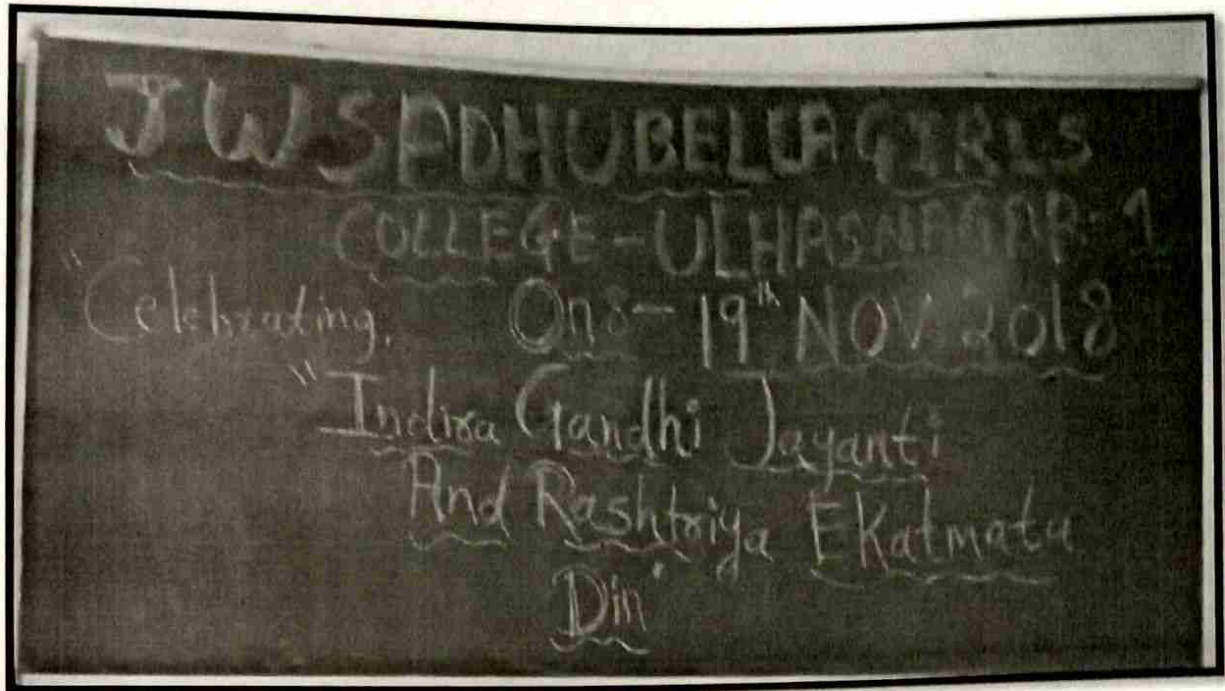 J W SADHUBELLA GIRLS
COLLEGE - ULHASNAGAR: 1
"Celebrating. On:- 19th NOV 2018
"Indira Gandhi Jayanti
And Rashtriya EKatmata
Din"